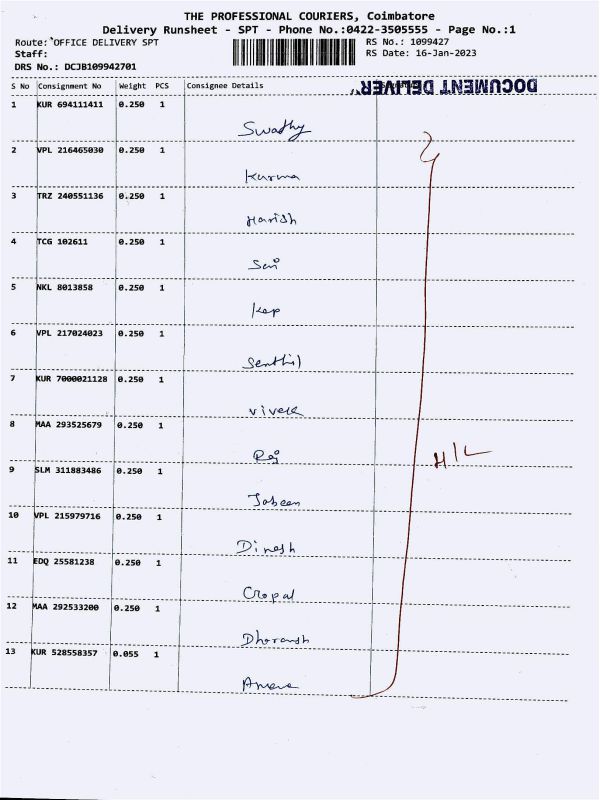 THE PROFESSIONAL COURIERS, Coimbatore
Delivery Runsheet - SPT - Phone No.:0422-3505555 - Page No.:1
Route: OFFICE DELIVERY SPT RS No.: 1099427
Staff: RS Date: 16-Jan-2023
DRS No.: DCJB109942701
DOCUMENT DELIVER
S No Consignment No Weight PCS Consignee Details
1 KUR 694111411 0.250 1
Swathy
2 VPL 216465030 0.250 1
Kurma
3 TRZ 240551136 0.250 1
Harish
4 TCG 102611 0.250 1
Sai
5 NKL 8013858 0.250 1
6 VPL 217024023 0.250 1
Senthil
7 KUR 7000021128 0.250 1
Vivek
8 MAA 293525679 0.250 1
Raj
H/L
9 SLM 311883486 0.250 1
Jabeen
10 VPL 215979716 0.250 1
Dinesh
11 EDQ 25581238 0.250 1
Gopal
12 MAA 292533200 0.250 1
13 KUR 528558357 0.055 1